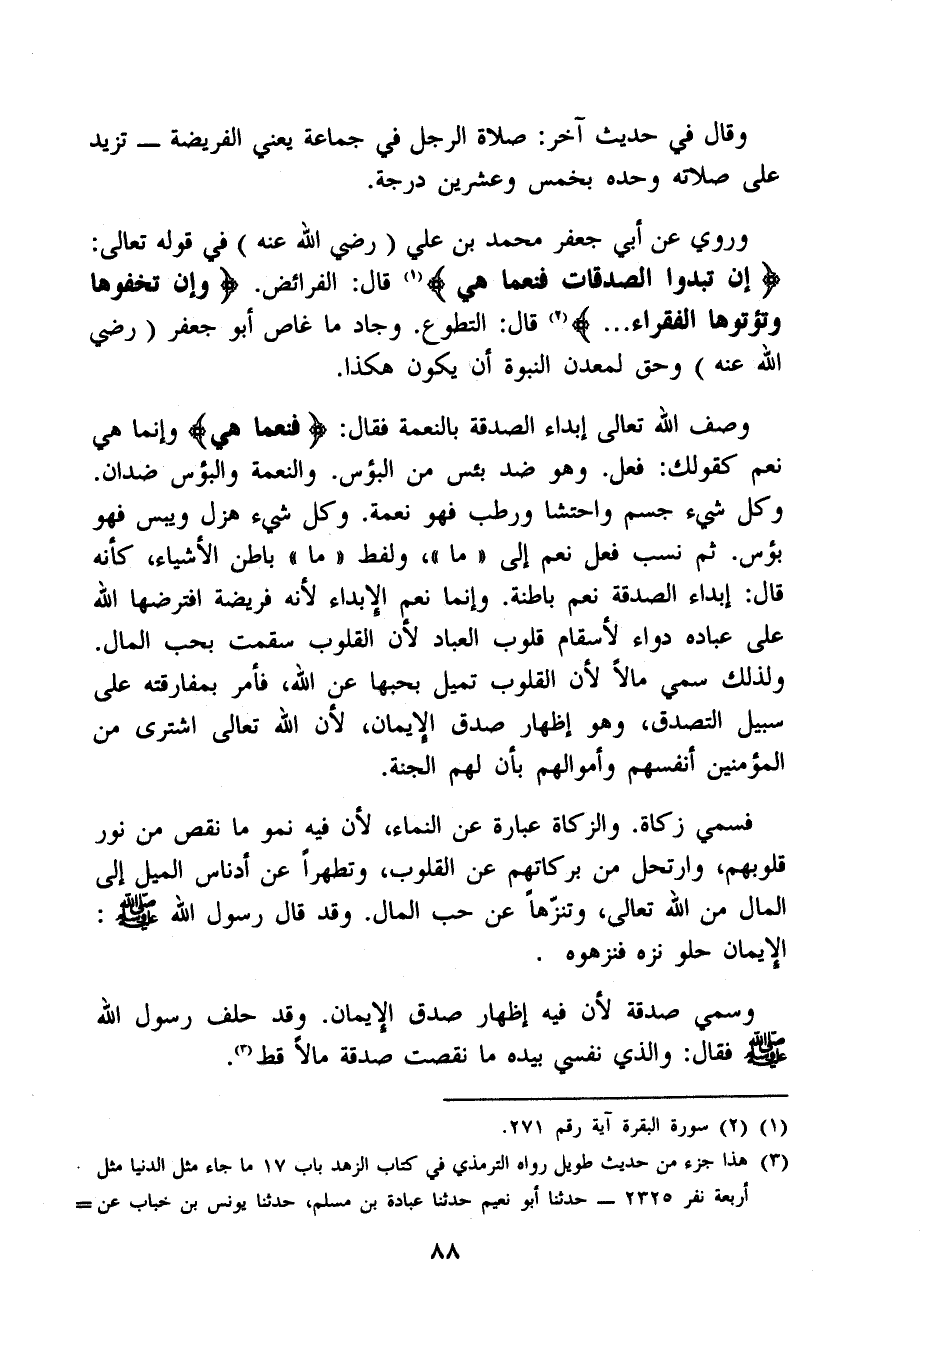 وقال في حديث آخر: صلاة الرجل في جماعة يعني الفريضة — تزيد
على صلاته وحده بخمس وعشرين درجة.
وروي عن أبي جعفر محمد بن علي ( رضي الله عنه ) في قوله تعالى:
﴿ إن تبدوا الصدقات فنعما هي ﴾(١) قال: الفرائض. ﴿ وإن تخفوها
وتؤتوها الفقراء... ﴾(٢) قال: التطوع. وجاد ما غاص أبو جعفر ( رضي
الله عنه ) وحق لمعدن النبوة أن يكون هكذا.
وصف الله تعالى إبداء الصدقة بالنعمة فقال: ﴿ فنعما هي﴾ وإنما هي
نعم كقولك: فعل. وهو ضد بئس من البؤس. والنعمة والبؤس ضدان.
وكل شيء جسم واحتشا ورطب فهو نعمة. وكل شيء هزل ويبس فهو
بؤس. ثم نسب فعل نعم إلى « ما »، ولفط « ما » باطن الأشياء، كأنه
قال: إبداء الصدقة نعم باطنة. وإنما نعم الإبداء لأنه فريضة افترضها الله
على عباده دواء لأسقام قلوب العباد لأن القلوب سقمت بحب المال.
ولذلك سمي مالاً لأن القلوب تميل بحبها عن الله، فأمر بمفارقته على
سبيل التصدق، وهو إظهار صدق الإيمان، لأن الله تعالى اشترى من
المؤمنين أنفسهم وأموالهم بأن لهم الجنة.
فسمي زكاة. والزكاة عبارة عن النماء، لأن فيه نمو ما نقص من نور
قلوبهم، وارتحل من بركاتهم عن القلوب، وتطهراً عن أدناس الميل إلى
المال من الله تعالى، وتنزّهاً عن حب المال. وقد قال رسول الله ﷺ :
الإيمان حلو نزه فنزهوه .
وسمي صدقة لأن فيه إظهار صدق الإيمان. وقد حلف رسول الله
ﷺ فقال: والذي نفسي بيده ما نقصت صدقة مالاً قط(٣).
(١) (٢) سورة البقرة آية رقم ٢٧١.
(٣) هذا جزء من حديث طويل رواه الترمذي في كتاب الزهد باب ١٧ ما جاء مثل الدنيا مثل
أربعة نفر ٢٣٢٥ — حدثنا أبو نعيم حدثنا عبادة بن مسلم، حدثنا يونس بن خباب عن =
٨٨